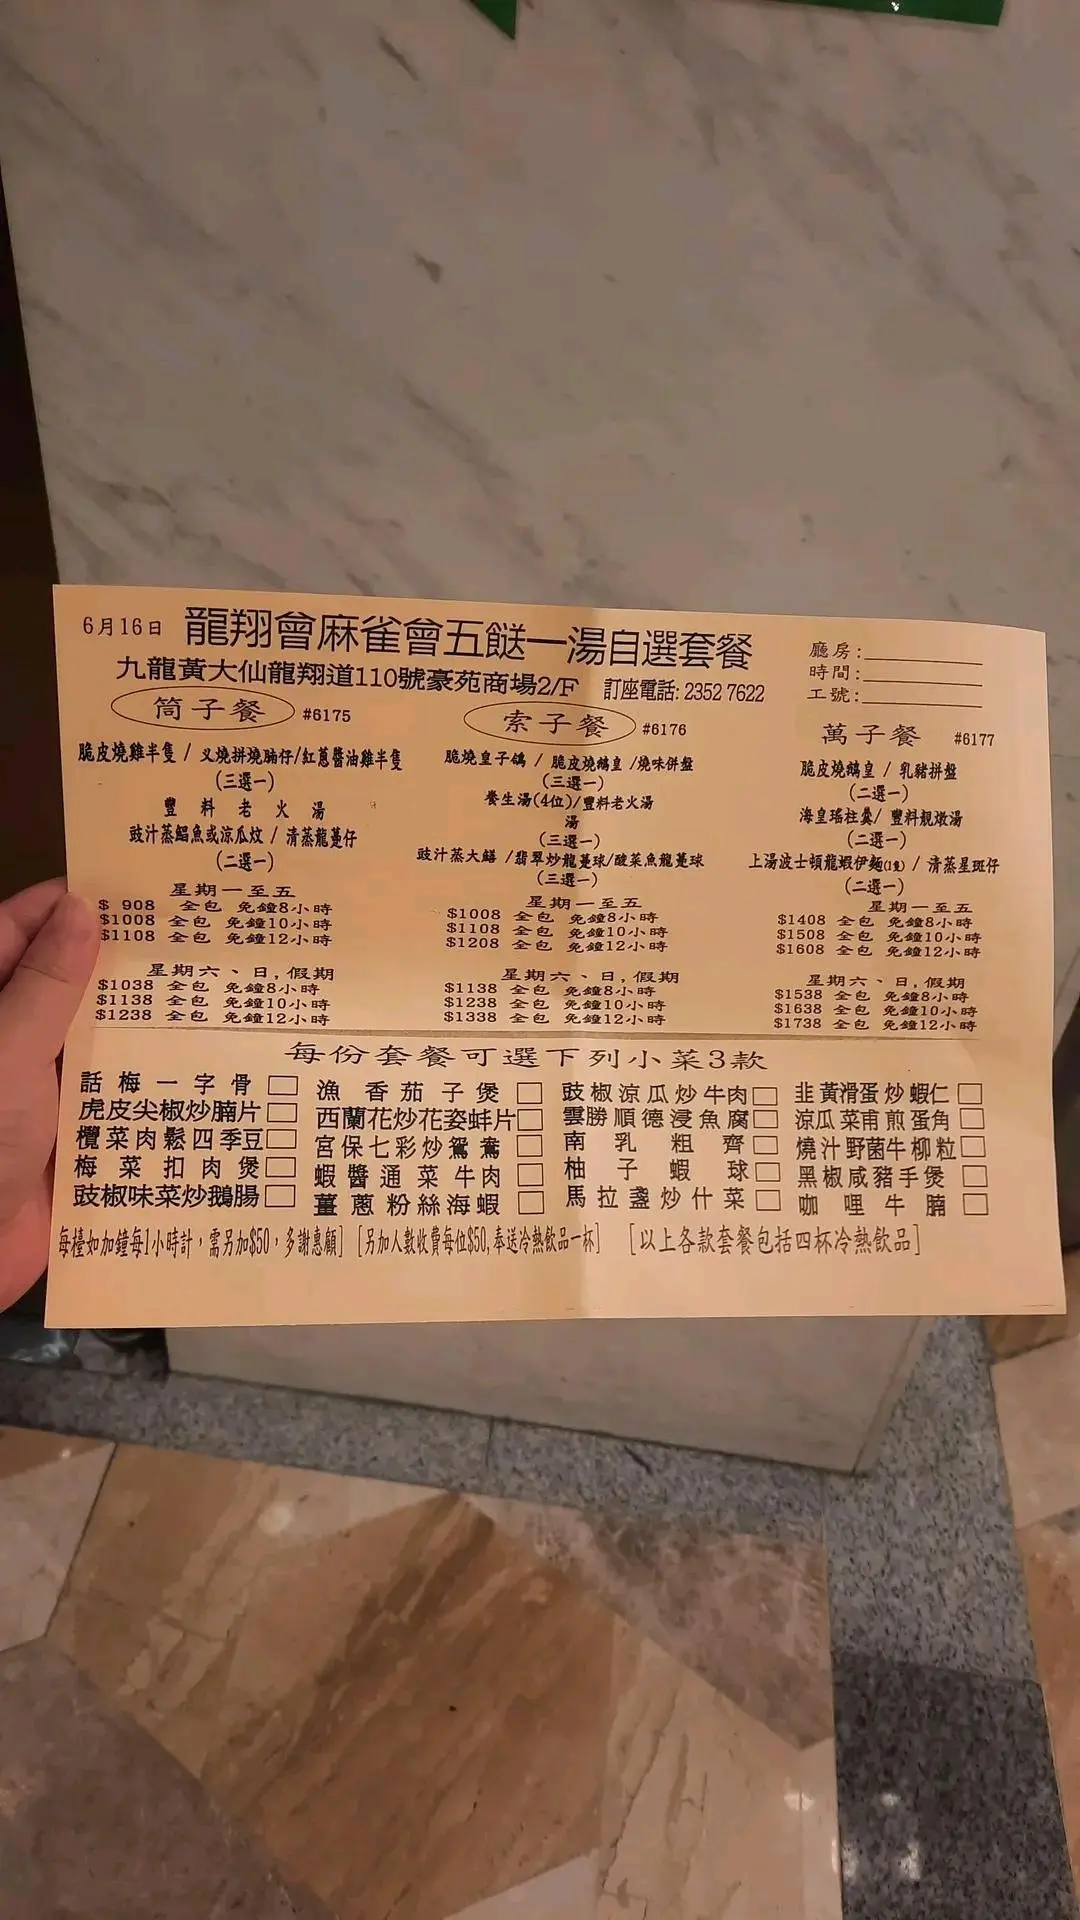 6月16日 龍翔會麻雀會五餸一湯自選套餐
九龍黃大仙龍翔道110號豪苑商場2/F 訂座電話: 2352 7622
廳房:
時間:
工號:
筒子餐 #6175
脆皮燒雞半隻 / 叉燒拼燒腩仔/紅蔥醬油雞半隻
(三選一)
豐料老火湯
豉汁蒸鯧魚或涼瓜炆 / 清蒸龍躉仔
(二選一)
星期一至五
$ 908 全包 免鐘8小時
$1008 全包 免鐘10小時
$1108 全包 免鐘12小時
星期六、日,假期
$1038 全包 免鐘8小時
$1138 全包 免鐘10小時
$1238 全包 免鐘12小時
索子餐 #6176
脆燒皇子鴿 / 脆皮燒鵝皇 /燒味併盤
(三選一)
養生湯(4位)/豐料老火湯
湯
(三選一)
豉汁蒸大鱔 /翡翠炒龍躉球/酸菜魚龍躉球
(三選一)
星期一至五
$1008 全包 免鐘8小時
$1108 全包 免鐘10小時
$1208 全包 免鐘12小時
星期六、日,假期
$1138 全包 免鐘8小時
$1238 全包 免鐘10小時
$1338 全包 免鐘12小時
萬子餐 #6177
脆皮燒鵝皇 / 乳豬拼盤
(二選一)
海皇瑤柱羹/ 豐料靚燉湯
(二選一)
上湯波士頓龍蝦伊麵(1隻) / 清蒸星斑仔
(二選一)
星期一至五
$1408 全包 免鐘8小時
$1508 全包 免鐘10小時
$1608 全包 免鐘12小時
星期六、日,假期
$1538 全包 免鐘8小時
$1638 全包 免鐘10小時
$1738 全包 免鐘12小時
每份套餐可選下列小菜3款
話梅一字骨
虎皮尖椒炒腩片
欖菜肉鬆四季豆
梅菜扣肉煲
豉椒味菜炒鵝腸
漁香茄子煲
西蘭花炒花姿蚌片
宮保七彩炒鴛鴦
蝦醬通菜牛肉
薑蔥粉絲海蝦
豉椒涼瓜炒牛肉
雲勝順德浸魚腐
南乳粗齋
柚子蝦球
馬拉盞炒什菜
韭黃滑蛋炒蝦仁
涼瓜菜甫煎蛋角
燒汁野菌牛柳粒
黑椒咸豬手煲
咖哩牛腩
每檯如加鐘每1小時計，需另加$50，多謝惠顧] [另加人數收費每位$50,奉送冷熱飲品一杯] [以上各款套餐包括四杯冷熱飲品]